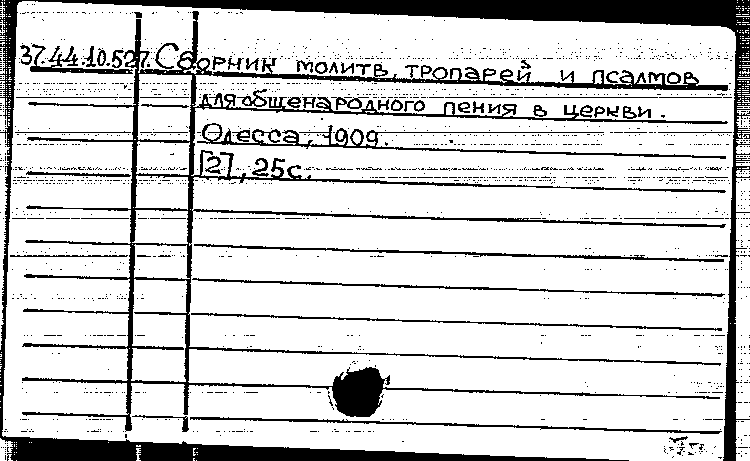 37.44.10.527. Сборник молитв, тропарей и псалмов
для общенародного пения в церкви.
Одесса, 1909.
[2], 25с.